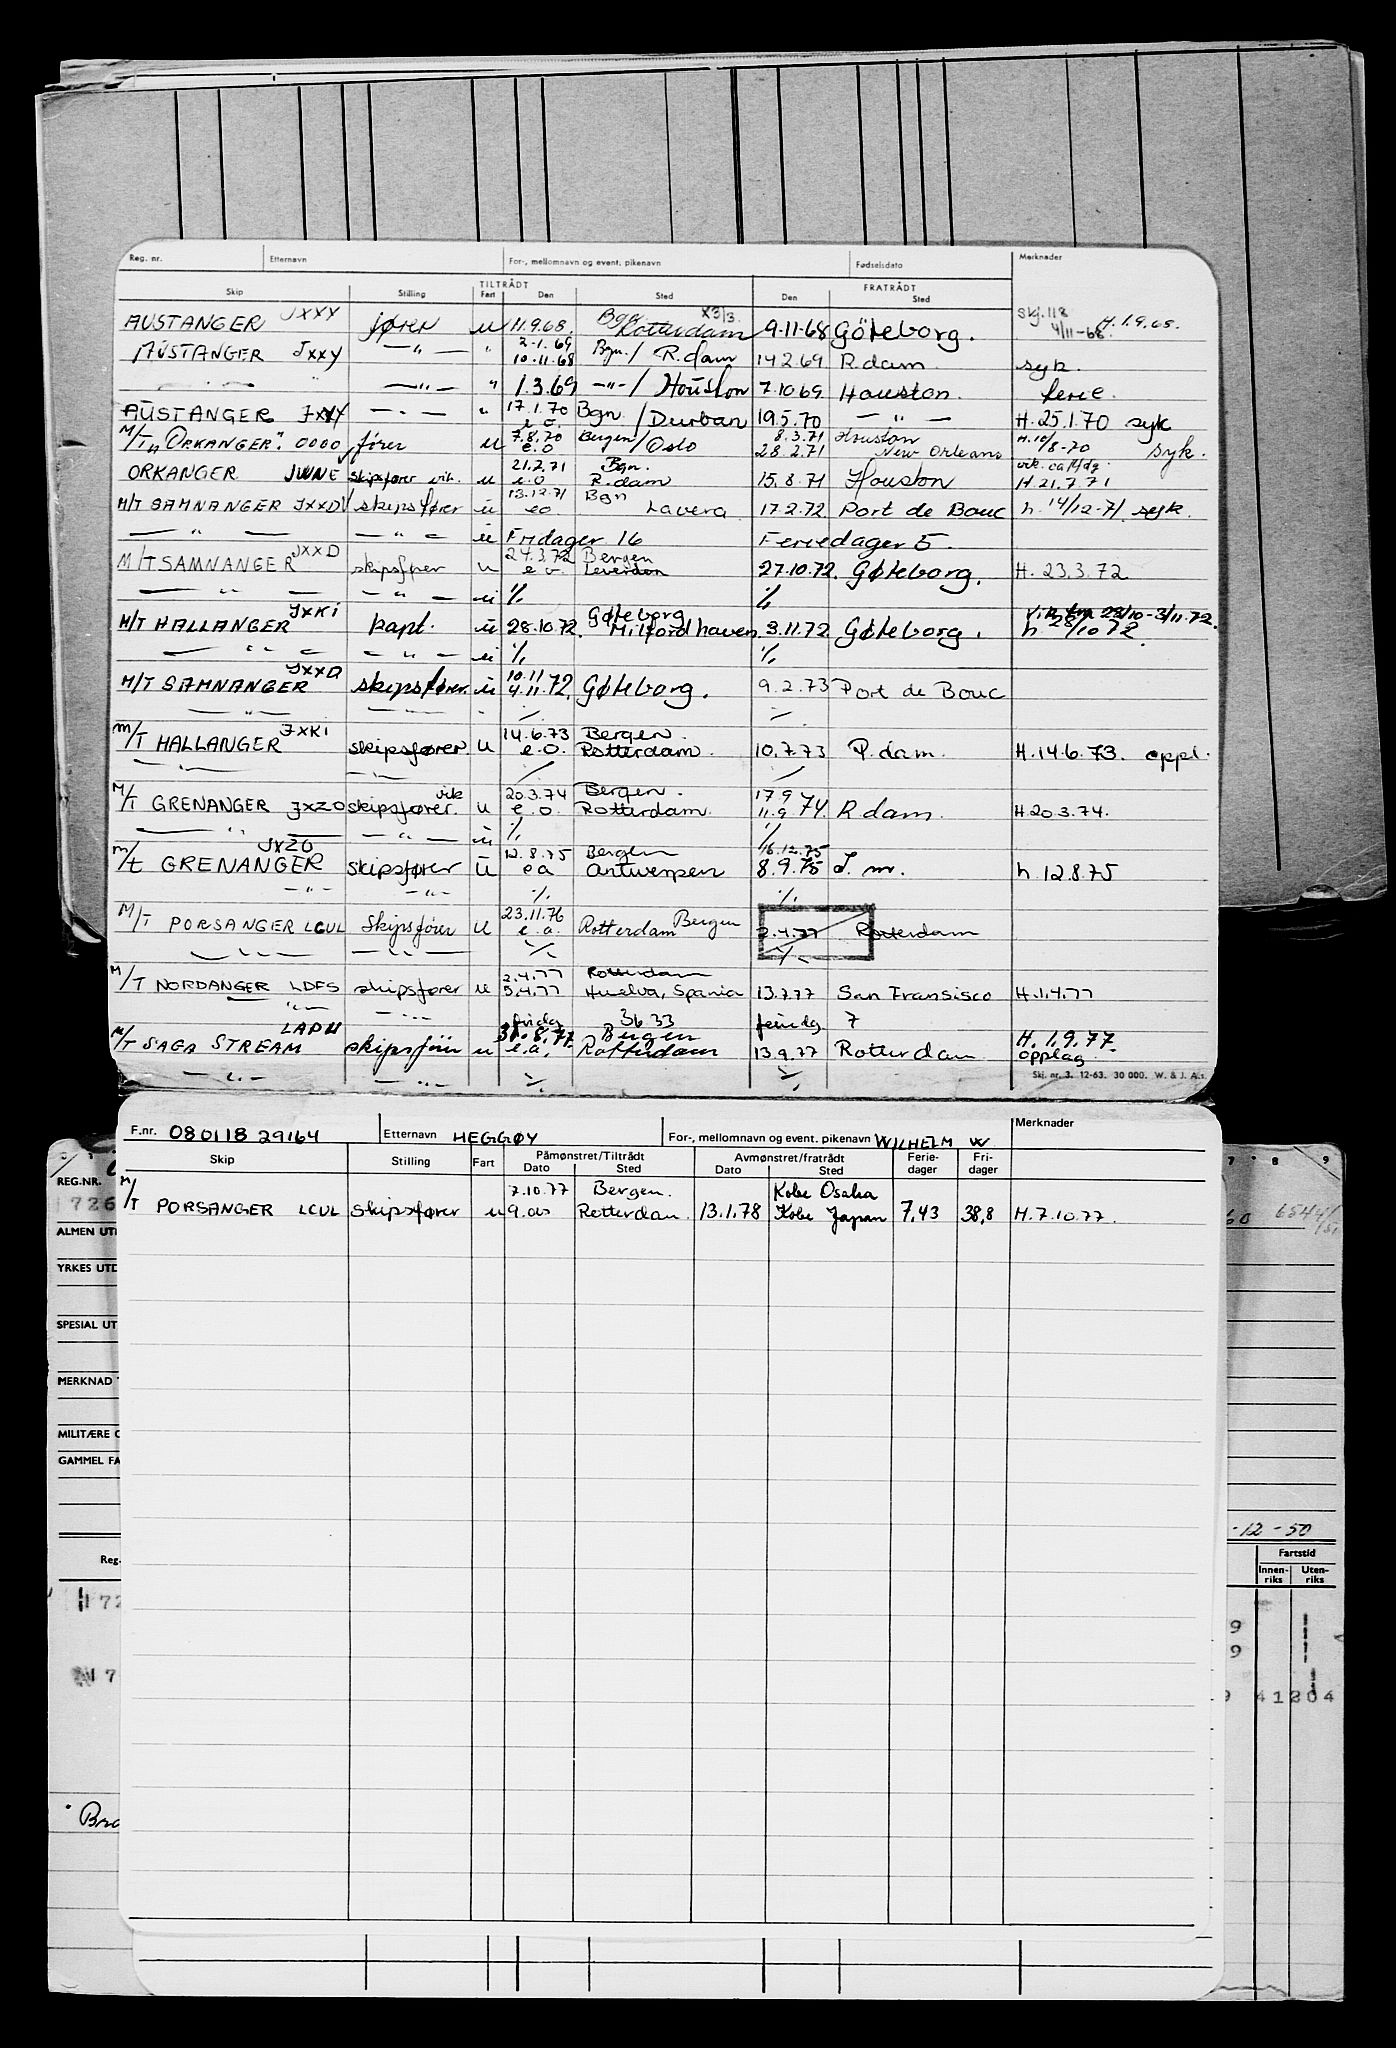 Reg. nr. Etternavn For-, mellomnavn og event. pikenavn Fødselsdato Merknader
TILTRÅDT FRATRÅDT
Skip Stilling Fart Den Sted Den Sted
AUSTANGER JXXY fører u 11.9.68. Bgn Rotterdam X3/3. 9.11-68 Göteborg. skj. 118 4/11-68. H.1.9.68.
AUSTANGER JXXY —"— " 2-1.69 10.11.68 Bgn./ R.dam 14.2.69 R.dam syk.
—"— " 1.3.69 —"—/ Houston 7.10.69 Houston. ferie.
AUSTANGER JXXY —"— " 17.1.70 e.o. Bgn /Durban 19.5.70 —"— H. 25.1.70 syk
M/T "ORKANGER". OOOO fører u 7.8.70 e.o Bergen /Oslo 8.3.71 28.2.71 Houston New Orleans H. 10/8-70 syk.
ORKANGER JWNE skipsfører vik. u 21.7.71 e.o Bgn. R.dam 15.8.71 Houston vik. ca 14dg. H 21.7.71
M/T SAMNANGER JXXD skipsfører u 13.12.71 eo Bgn Lavera 17.2.72 Port de Bouc h. 14/12-71. syk.
—"— —"— u Fridager 16 Feriedager 5.
M/T SAMNANGER JXXD skipsfører u 24.3.72 e.o. Bergen 27.10.72. Gøteborg. H. 23.3.72
—"— —"— u % %
M/T HALLANGER JXKI kapt. u 28.10.72. Gøteborg Milford haven 3.11.72 Gøteborg. Vik fra 28/10-3/11.72. h 28/10 72
—"— —"— u % %
M/T SAMNANGER JXXD skipsfører u 10.11 4.11.72. Gøteborg. 9.2.73 Port de Bouc
—"— —"— % %
M/T HALLANGER JXKI skipsfører u 14.6.73 e.o. Bergen. Rotterdam. 10.7.73 R.dam. H.14.6.73. oppl.
—"— —"— % %
M/T GRENANGER JXZO skipsfører. vik u 20.3.74 e.o. Bergen. Rotterdam. 17.9 11.9 74. R.dam. H.20.3.74.
—"— —"— u % %
M/T GRENANGER JXZO skipsfører u 12.8.75 ea Bergen Antwerpen 16.12.75 8.9.75 S. m. h. 12.8.75
—"— —"— % %
M/T PORSANGER LCUL Skipsfører u 23.11.76 e.a. Rotterdam Bergen 2.4.77 Rotterdam
—"— —"— % %
M/T NORDANGER LDFS skipsfører u 2.4.77 5.4.77 Rotterdam Huelva, Spania 13.7.77 San Fransisco H.1.4.77
—"— —"— fridg 36 33 feridg 7
M/T SAGA STREAM LADU skipsfører u 31.8.77. e.a. Bergen Rotterdam 13.9.77 Rotterdam H. 1.9.77. opplag
—"— —"— % %
Skj. nr. 3. 12-63. 30 000. W. & J. A.s.
F.nr. 080118 29164 Etternavn HEGGØY For-, mellomnavn og event. pikenavn WILHELM W Merknader
Skip Stilling Fart Påmønstret/Tiltrådt Avmønstret/fratrådt Ferie-dager Fri-dager
Dato Sted Dato Sted
M/T PORSANGER LCUL skipsfører u 7.10.77 9. do Bergen. Rotterdam. 13.1.78 Kobe Osaka Kobe Japan 7,43 38,8 H.7.10.77.
REG.NR. 7 8 9
726
ALMEN UT
YRKES UTD
SPESIAL UT
MERKNAD
MILITÆRE
GAMMEL FA
-12-50
Reg. Fartstid
Innen-riks Uten-riks
172
9
9
7
9 41204
Bra